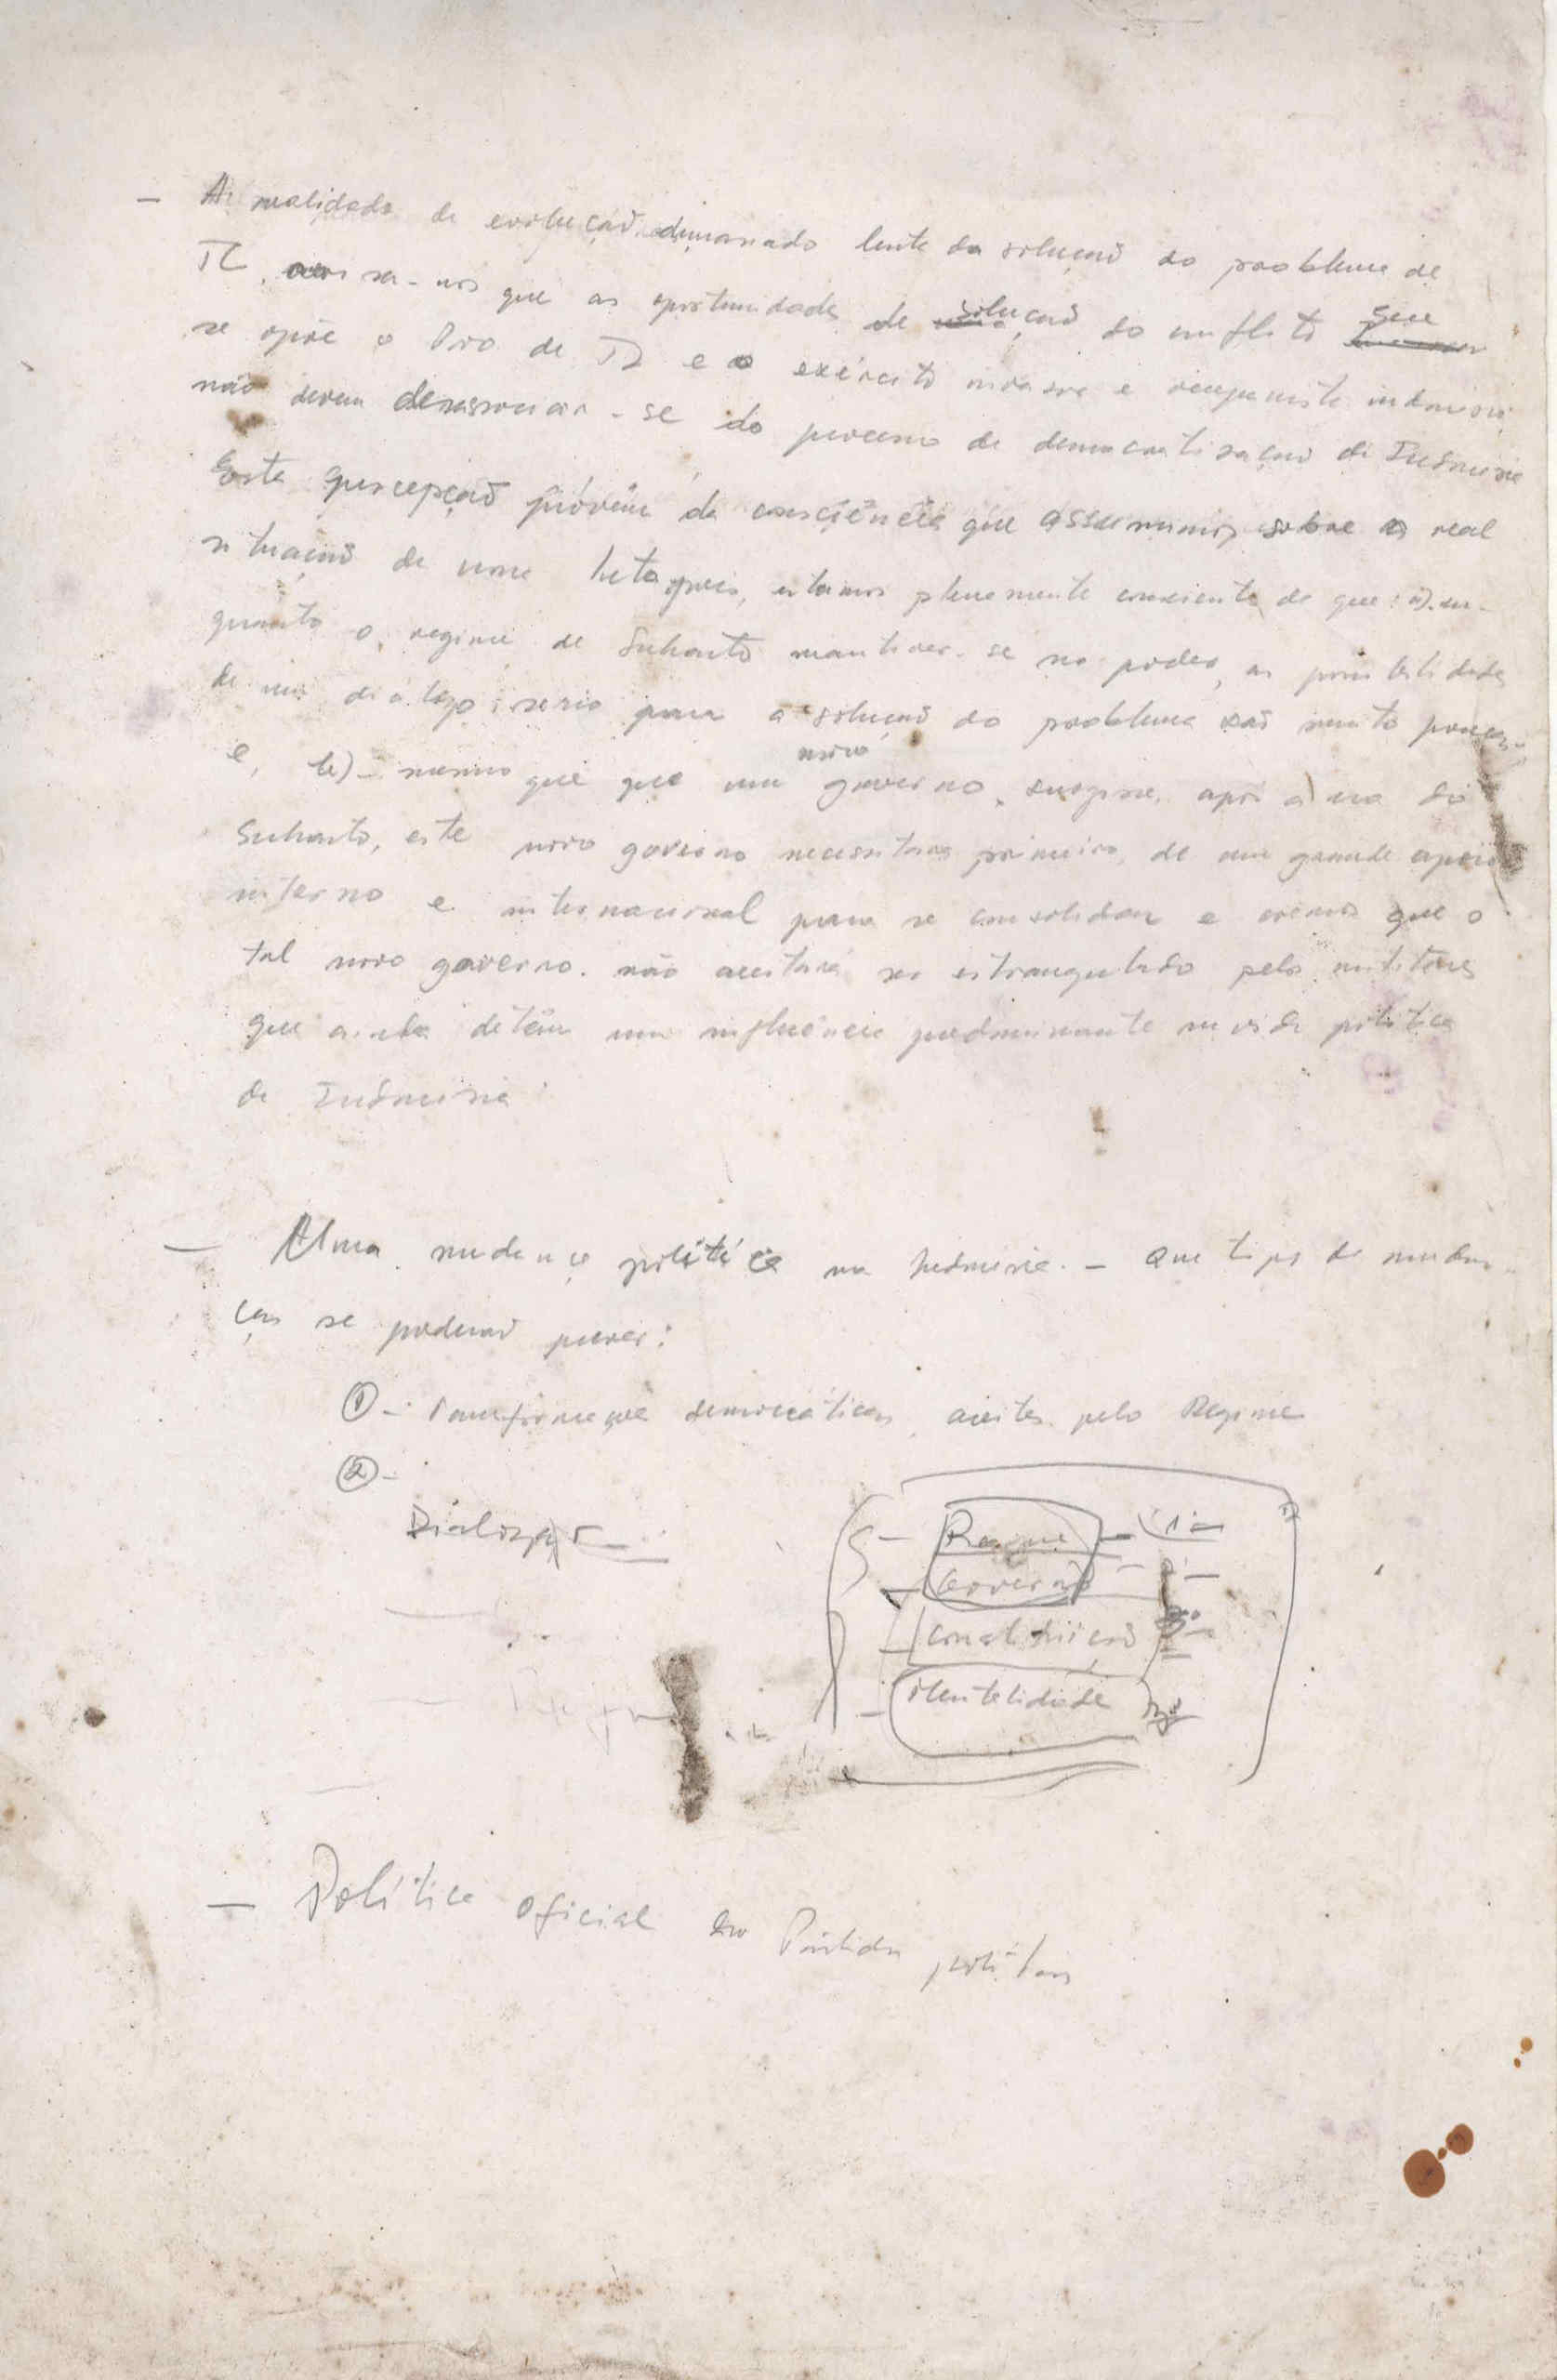 - A realidade da evolução demasiado lenta da solução do problema de
TL, avisa-nos que as oportunidades de solução do conflito que
se opõe o Povo de TL e o exército invasor e ocupante indonésio,
não devem desassociar-se do processo de democratização da Indonésia
Esta percepção provém da consciência que assumimos sobre a real
situação da nossa luta, pois, estamos plenamente conscientes de que: a). en-
quanto o regime de Suharto mantiver-se no poder, as possibilidades
de um diálogo sério para a solução do problema são muito poucas
e, b) - mesmo que que um novo governo, surgisse, após a era do
Suharto, este novo governo necessitará primeiro, de um grande apoio
interno e internacional para se consolidar e cremos que o
tal novo governo. não aceitará ser estrangulado pelos militares
que ainda detêm uma influência predominante na vida política
da Indonésia
- Uma mudança política na Indonésia. - Que tipo de mudan-
ças se poderão prever:
① - Transformações democráticas, aceites pelo Regime
② -
Dialogar
- Regime - 1º -
- Governo - 2º -
- Constituição 3º -
- Mentalidade
- Política oficial dos Partidos políticos